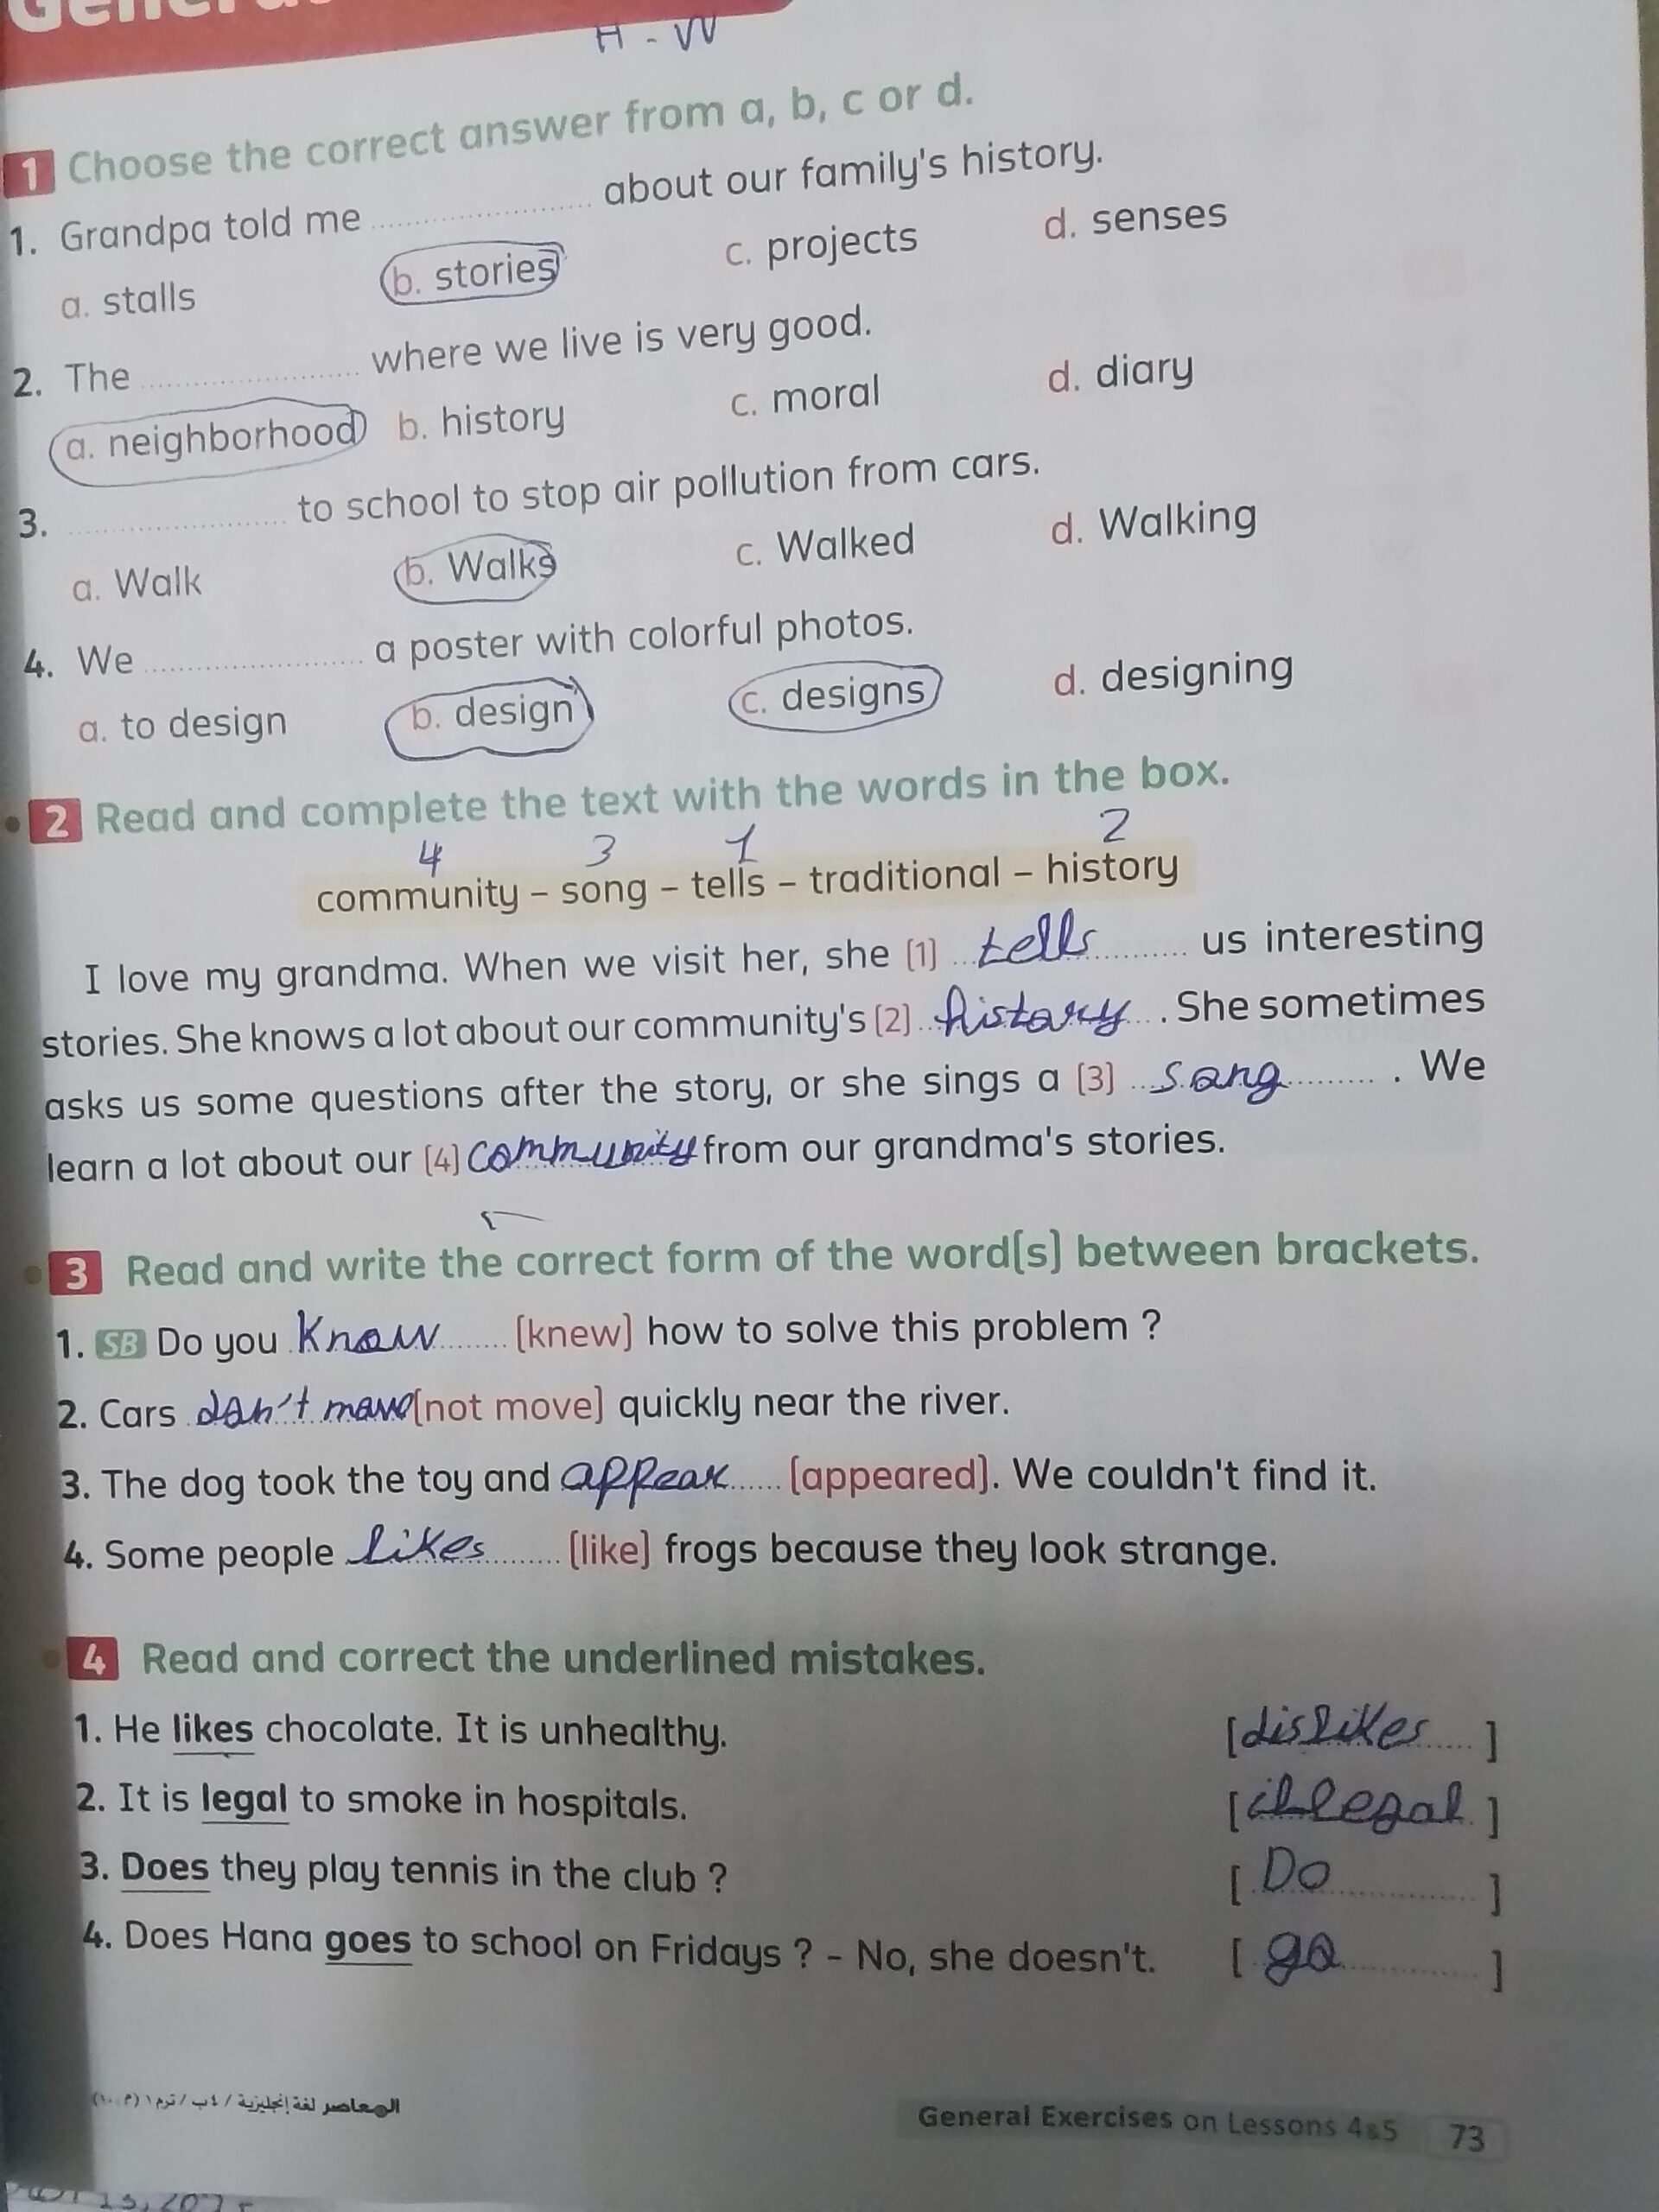 H - W
1 Choose the correct answer from a, b, c or d.
1. Grandpa told me .................... about our family's history.
a. stalls b. stories c. projects d. senses
2. The .................... where we live is very good.
a. neighborhood b. history c. moral d. diary
3. .................... to school to stop air pollution from cars.
a. Walk b. Walks c. Walked d. Walking
4. We .................... a poster with colorful photos.
a. to design b. design c. designs d. designing
2 Read and complete the text with the words in the box.
4 3 1 2
community – song – tells – traditional – history
I love my grandma. When we visit her, she (1) tells us interesting
stories. She knows a lot about our community's (2) history. She sometimes
asks us some questions after the story, or she sings a (3) song. We
learn a lot about our (4) community from our grandma's stories.
3 Read and write the correct form of the word(s) between brackets.
1. SB Do you know (knew) how to solve this problem ?
2. Cars don't move (not move) quickly near the river.
3. The dog took the toy and appear (appeared). We couldn't find it.
4. Some people likes (like) frogs because they look strange.
4 Read and correct the underlined mistakes.
1. He likes chocolate. It is unhealthy. [dislikes]
2. It is legal to smoke in hospitals. [illegal]
3. Does they play tennis in the club ? [Do]
4. Does Hana goes to school on Fridays ? - No, she doesn't. [go]
المعاصر لغة إنجليزية / ٤ب / ترم ١ (م ١٠)
General Exercises on Lessons 4&5 73